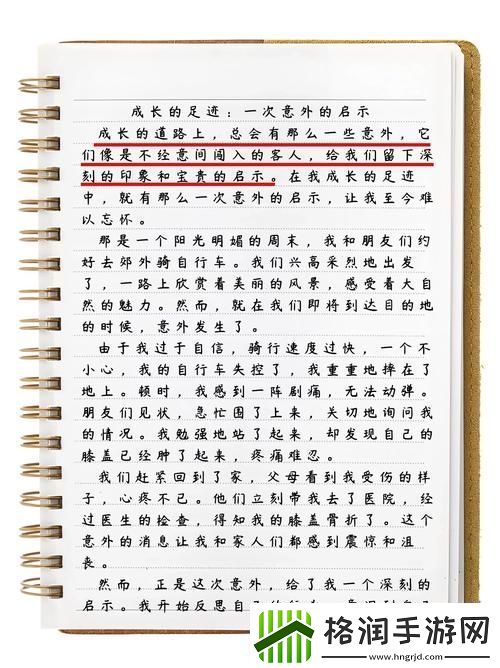 成长的足迹：一次意外的启示
成长的道路上，总会有那么一些意外，它
们像是不经意间闯入的客人，给我们留下深
刻的印象和宝贵的启示。在我成长的足迹
中，就有那么一次意外的启示，让我至今难
以忘怀。
那是一个阳光明媚的周末，我和朋友们约
好去郊外骑自行车。我们兴高采烈地出发
了，一路上欣赏着美丽的风景，感受着大自
然的魅力。然而，就在我们即将到达目的地
的时候，意外发生了。
由于我过于自信，骑行速度过快，一个不
小心，我的自行车失控了，我重重地摔在了
地上。顿时，我感到一阵剧痛，无法动弹。
朋友们见状，急忙围了上来，关切地询问我
的情况。我勉强地站了起来，却发现自己的
膝盖已经肿了起来，疼痛难忍。
我们赶紧回到了家，父母看到我受伤的样
子，心疼不已。他们立刻带我去了医院，经
过医生的检查，得知我的膝盖骨折了。这个
意外的消息让我和家人们都感到震惊和沮
丧。
然而，正是这次意外，给了我一个深刻的
启示。我开始反思自己的
格润手游网
www.hngrjd.com